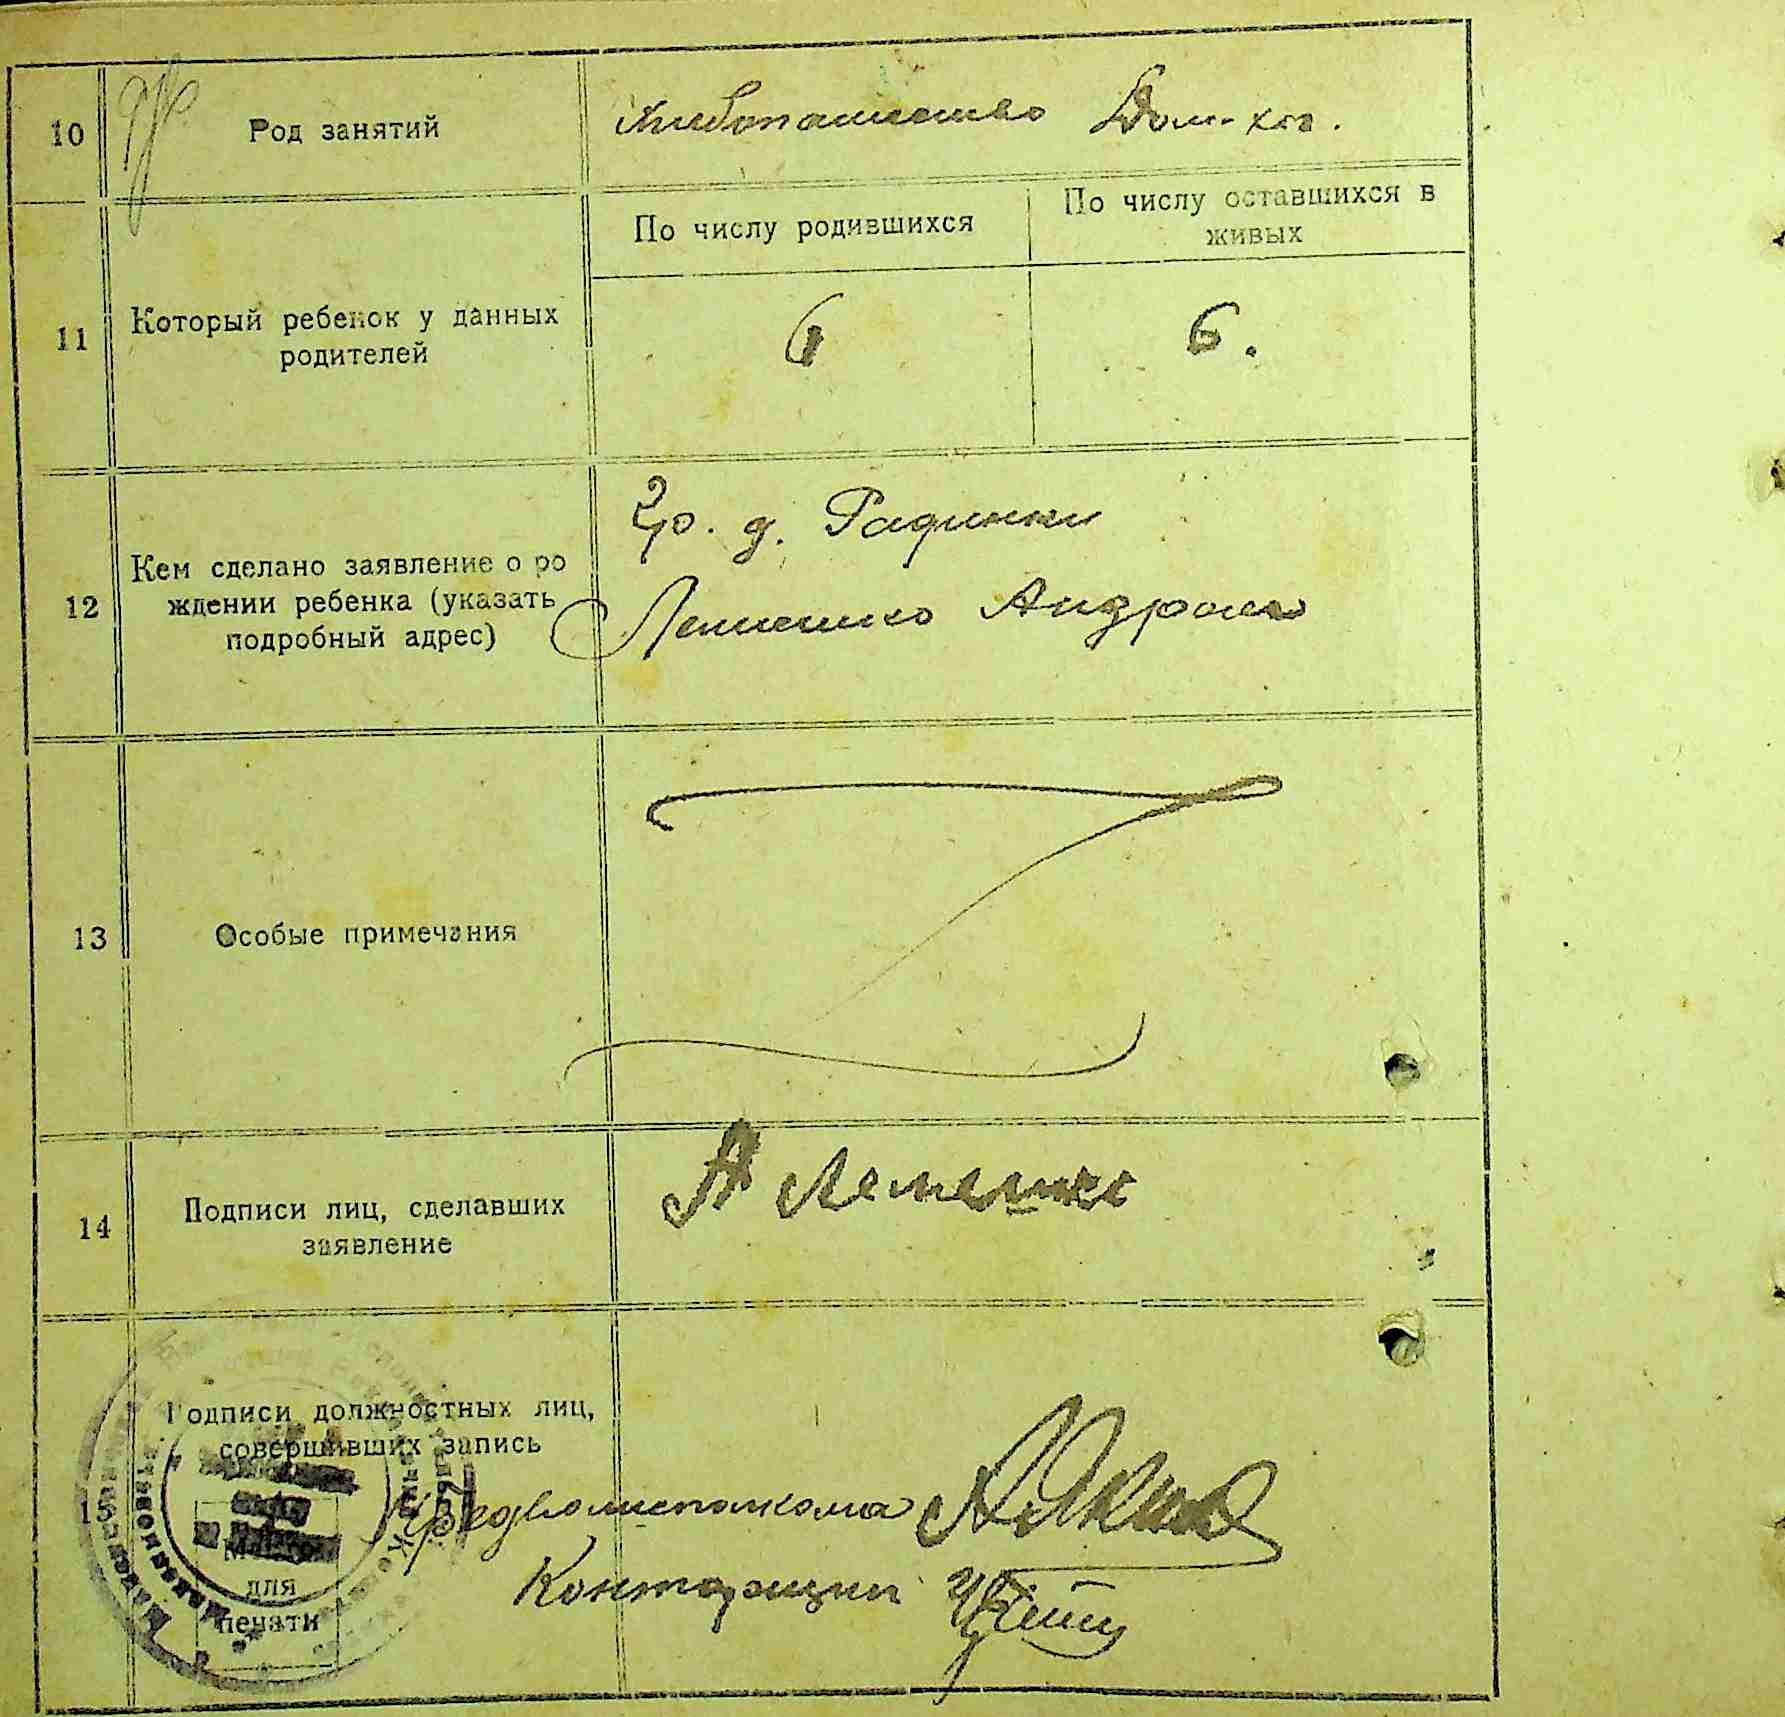 10
Род занятий
Хлебопашество Дом-хоз.
11
Который ребенок у данных
родителей
По числу родившихся
По числу оставшихся в
живых
6
6.
12
Кем сделано заявление о ро
ждении ребенка (указать
подробный адрес)
Гр. д.
Лемешко
13
Особые примечания
14
Подписи лиц, сделавших
заявление
А Лемешко
15
Подписи должностных лиц,
совершивших запись
Место
для
печати
Предволисполкома